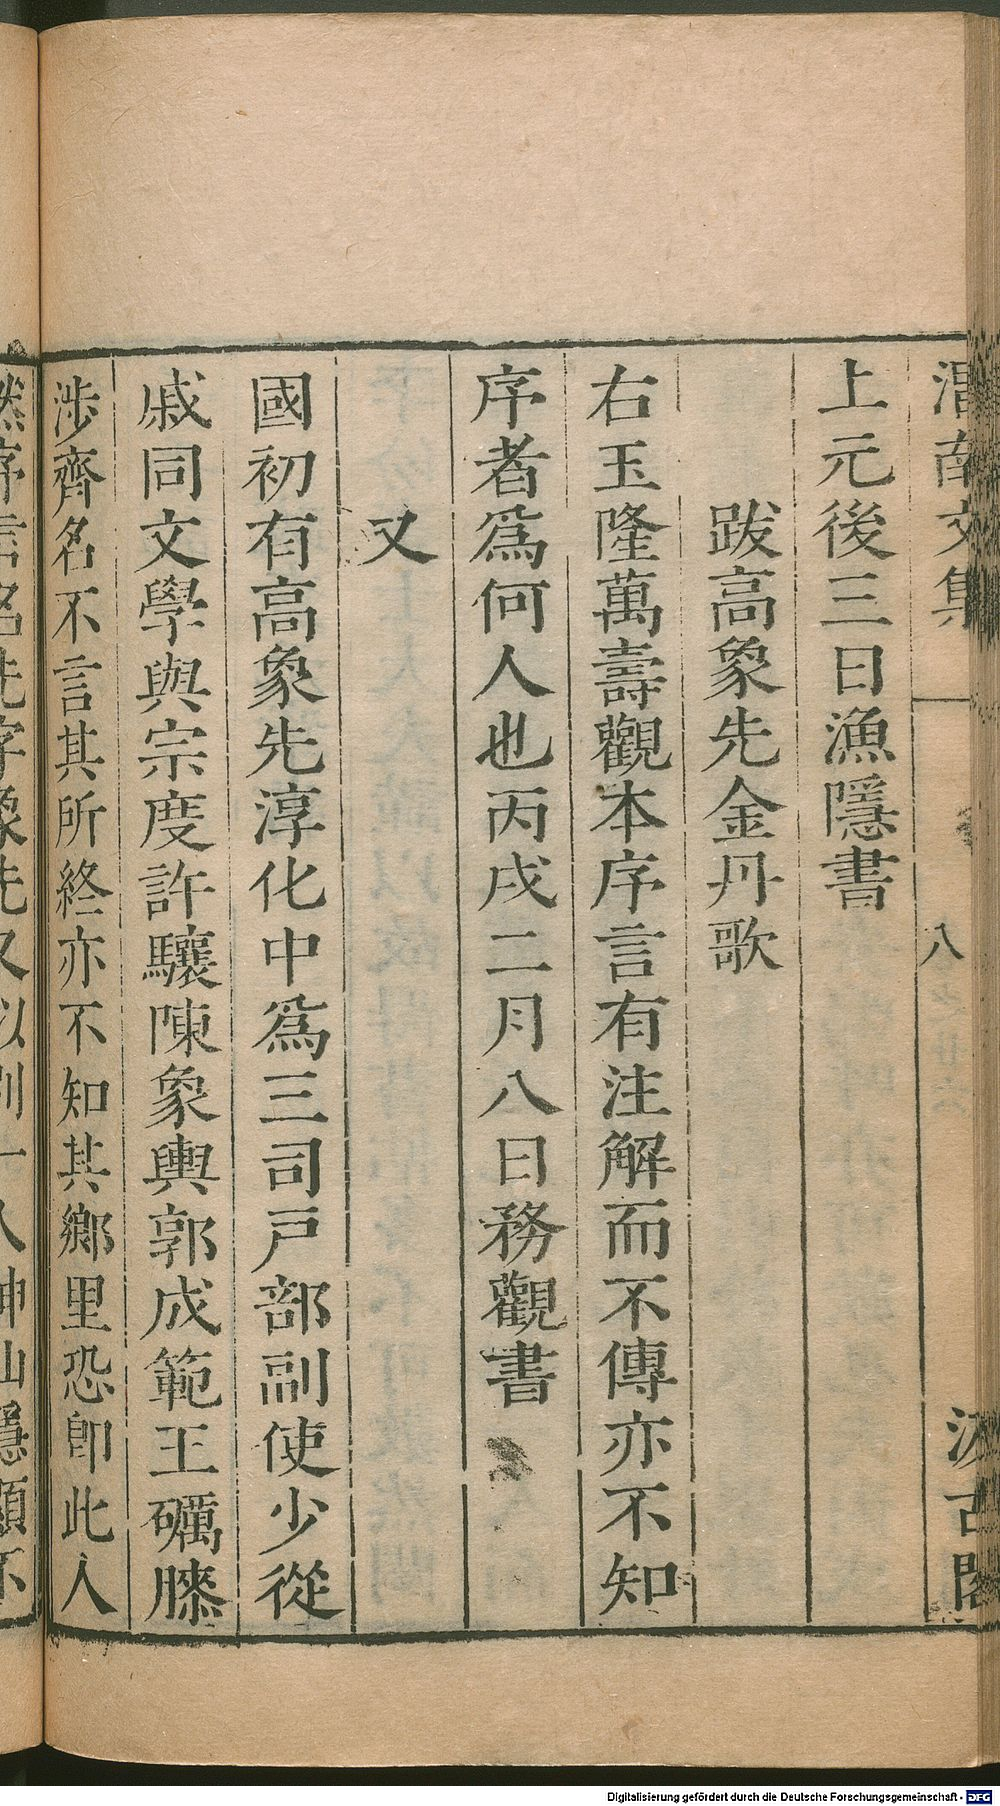 渭南文集
八
汲古閣
上元後三日漁隱書
跋高象先金丹歌
右玉隆萬壽觀本序言有注解而不傳亦不知
序者爲何人也丙戌二月八日務觀書
又
國初有高象先淳化中爲三司戶部副使少從
戚同文學與宗度許驤陳象輿郭成範王礪滕
涉齊名不言其所終亦不知其鄉里恐卽此人
然序言名先字象先又以別一人神山隱顯不
Digitalisierung gefördert durch die Deutsche Forschungsgemeinschaft - DFG